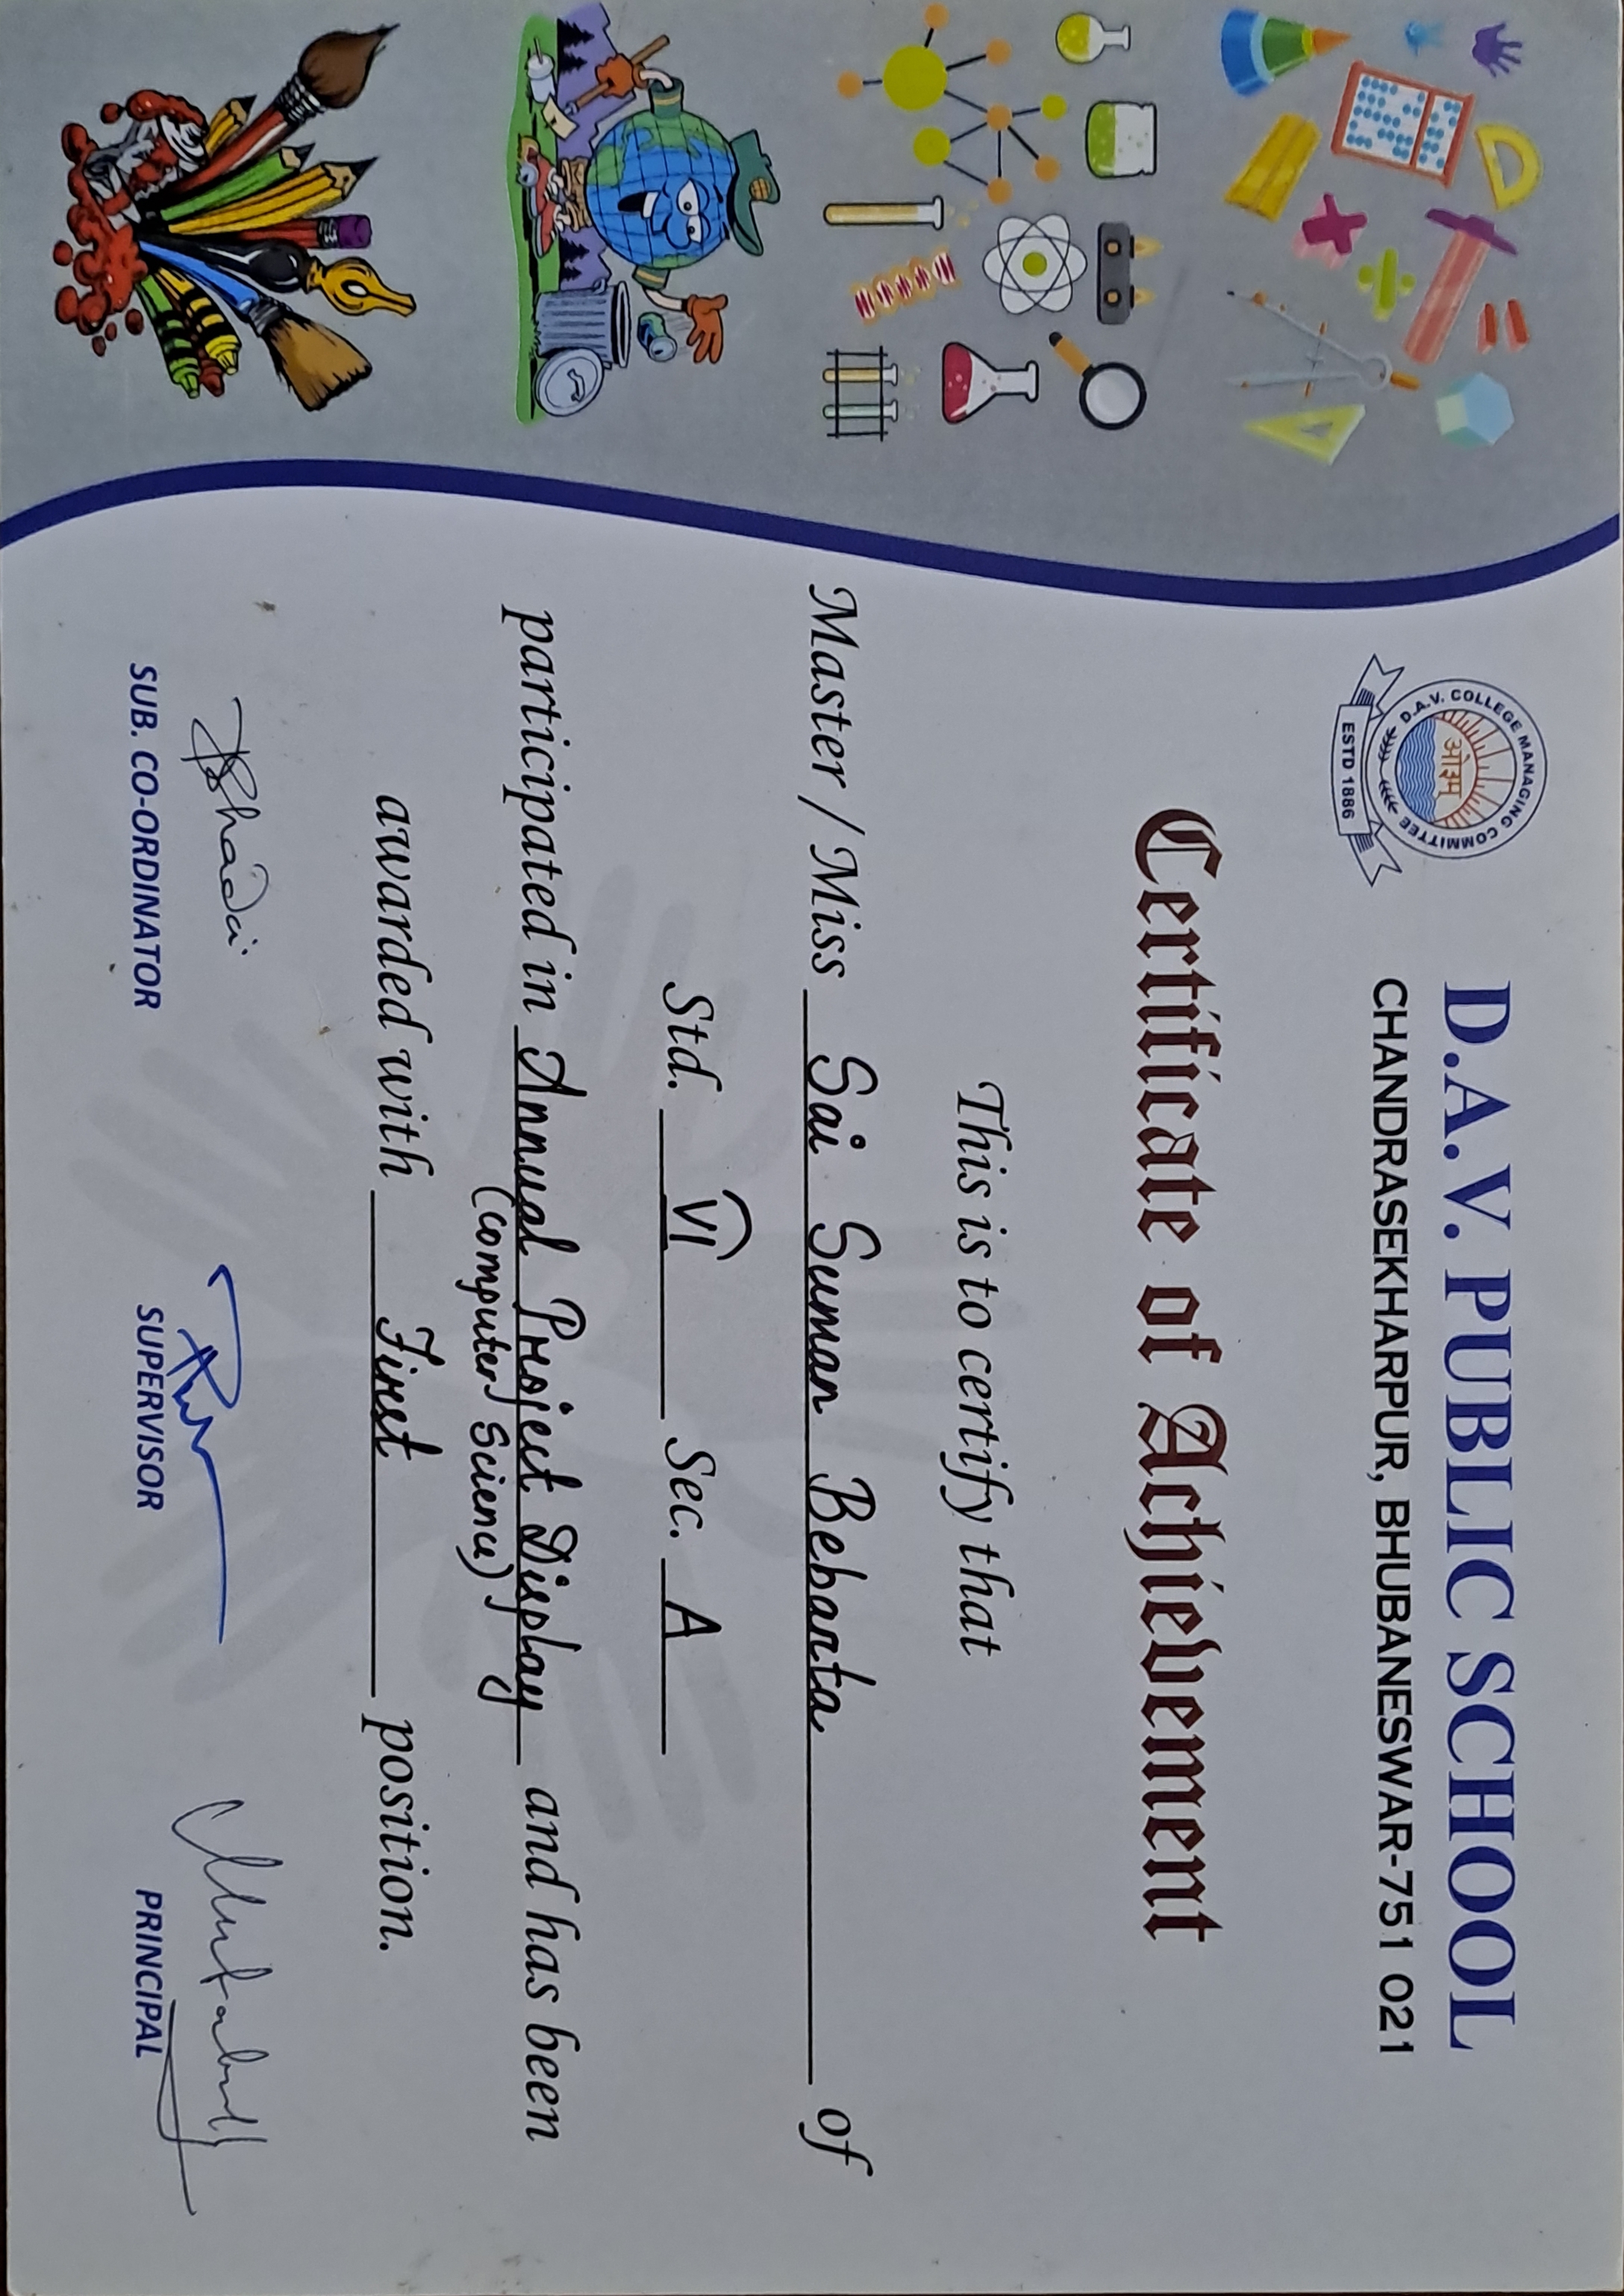 D.A.V. COLLEGE MANAGING COMMITTEE
ओ३म्
ESTD 1886
D.A.V. PUBLIC SCHOOL
CHANDRASEKHARPUR, BHUBANESWAR-751 021
Certificate of Achievement
This is to certify that
Master / Miss Sai Suman Bebarta of
Std. VI Sec. A
participated in Annual Project Display and has been
(Computer Science)
awarded with First position.
SUB. CO-ORDINATOR SUPERVISOR PRINCIPAL